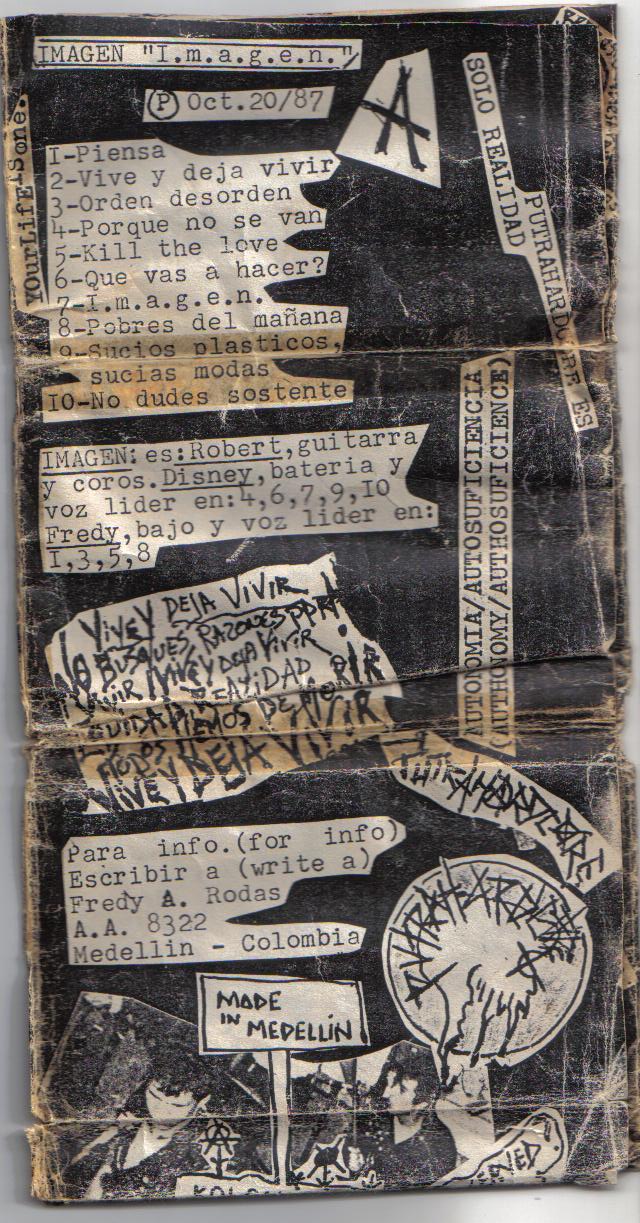 IMAGEN "I.m.a.g.e.n."
Ⓟ Oct.20/87
A
YOurLifEiSone.
SOLO REALIDAD
PUTRAHARDCORE ES
I-Piensa
2-Vive y deja vivir
3-Orden desorden
4-Porque no se van
5-Kill the love
6-Que vas a hacer?
7-I.m.a.g.e.n.
8-Pobres del mañana
9-Sucios plasticos,
sucias modas
IO-No dudes sostente
IMAGEN: es:Robert,guitarra
y coros.Disney,bateria y
voz lider en:4,6,7,9,IO
Fredy,bajo y voz lider en:
I,3,5,8
AUTONOMIA/AUTOSUFICIENCIA
(AUTHONOMY/AUTHOSUFICIENCE)
VIVE Y DEJA VIVIR
NO BUSQUES RAZONES
VIVIR VIVE Y DEJA VIVIR
REALIDAD
VIVE Y DEJA VIVIR
PUTRAHARDCORE
Para info.(for info)
Escribir a (write a)
Fredy A. Rodas
A.A. 8322
Medellin - Colombia
PUTRAHARDCORE
MADE
IN MEDELLÍN